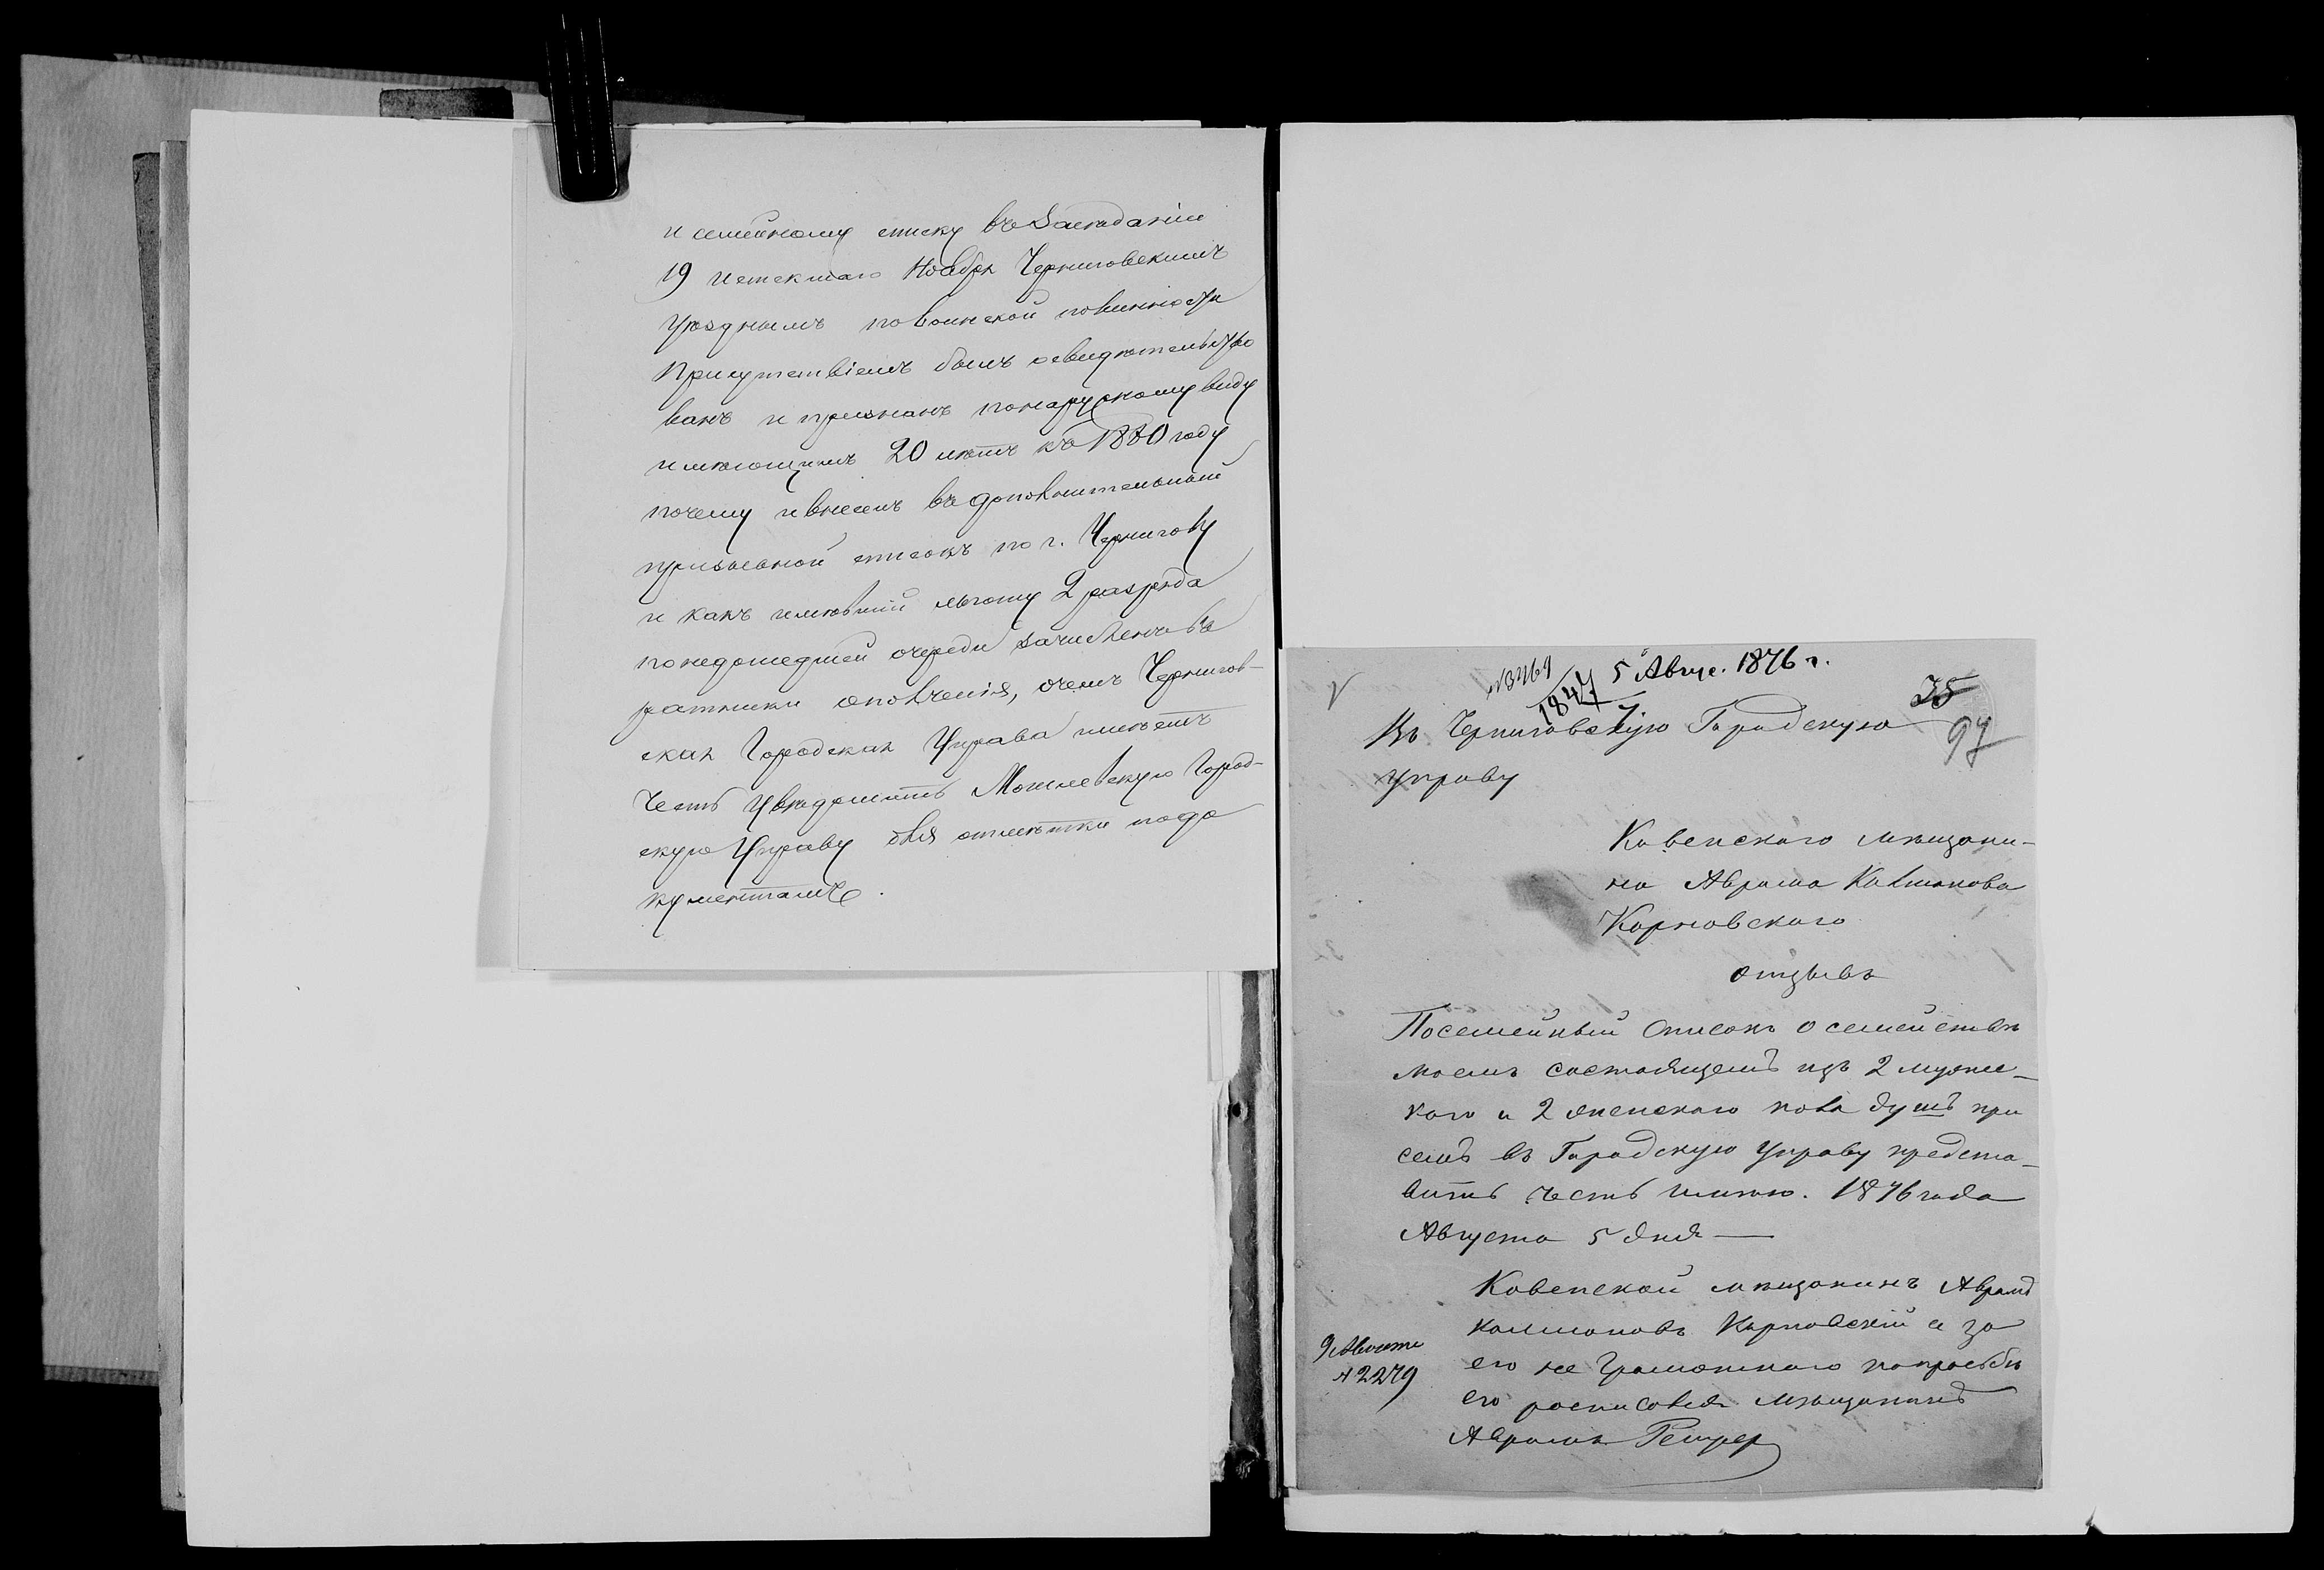 и семейному списку въ Засѣданіи
19 истекшаго Ноября Черниговскимъ
Уѣзднымъ по воинской повинности
Присутствіемъ былъ освидѣтельство
ванъ и признанъ по наружному виду
имѣющимъ 20 лѣтъ къ 1880 году
почему и внесенъ въ дополнительный
призывной списокъ по г. Чернигову
и какъ имѣвшій льготу 2 разряда
по недошедшей очереди зачисленъ въ
ратники ополченія, о чемъ Чернигов-
ская Городская Управа имѣетъ
честь увѣдомить Могилевскую Город-
скую Управу для отмѣтки по до
кументамъ.
5 Авгус. 1876 г.
1847
35
97
Въ Черниговскую Городскую
Управу
Ковенскаго мѣщани-
на Абрама Калманова
Карновскаго
отзывъ
Посемейный Списокъ о семействѣ
моемъ состоящемъ изъ 2 мужес-
каго и 2 женскаго пола душъ при
семъ въ Городскую Управу предста-
вить честь имѣю. 1876 года
Августа 5 дня —
Ковенской мѣщанинъ Абрамъ
Калмановъ Карновскій а за
его не Грамотнаго по просьбѣ
его росписался мѣщанинъ
Абрамъ
9 Августа
№ 2279